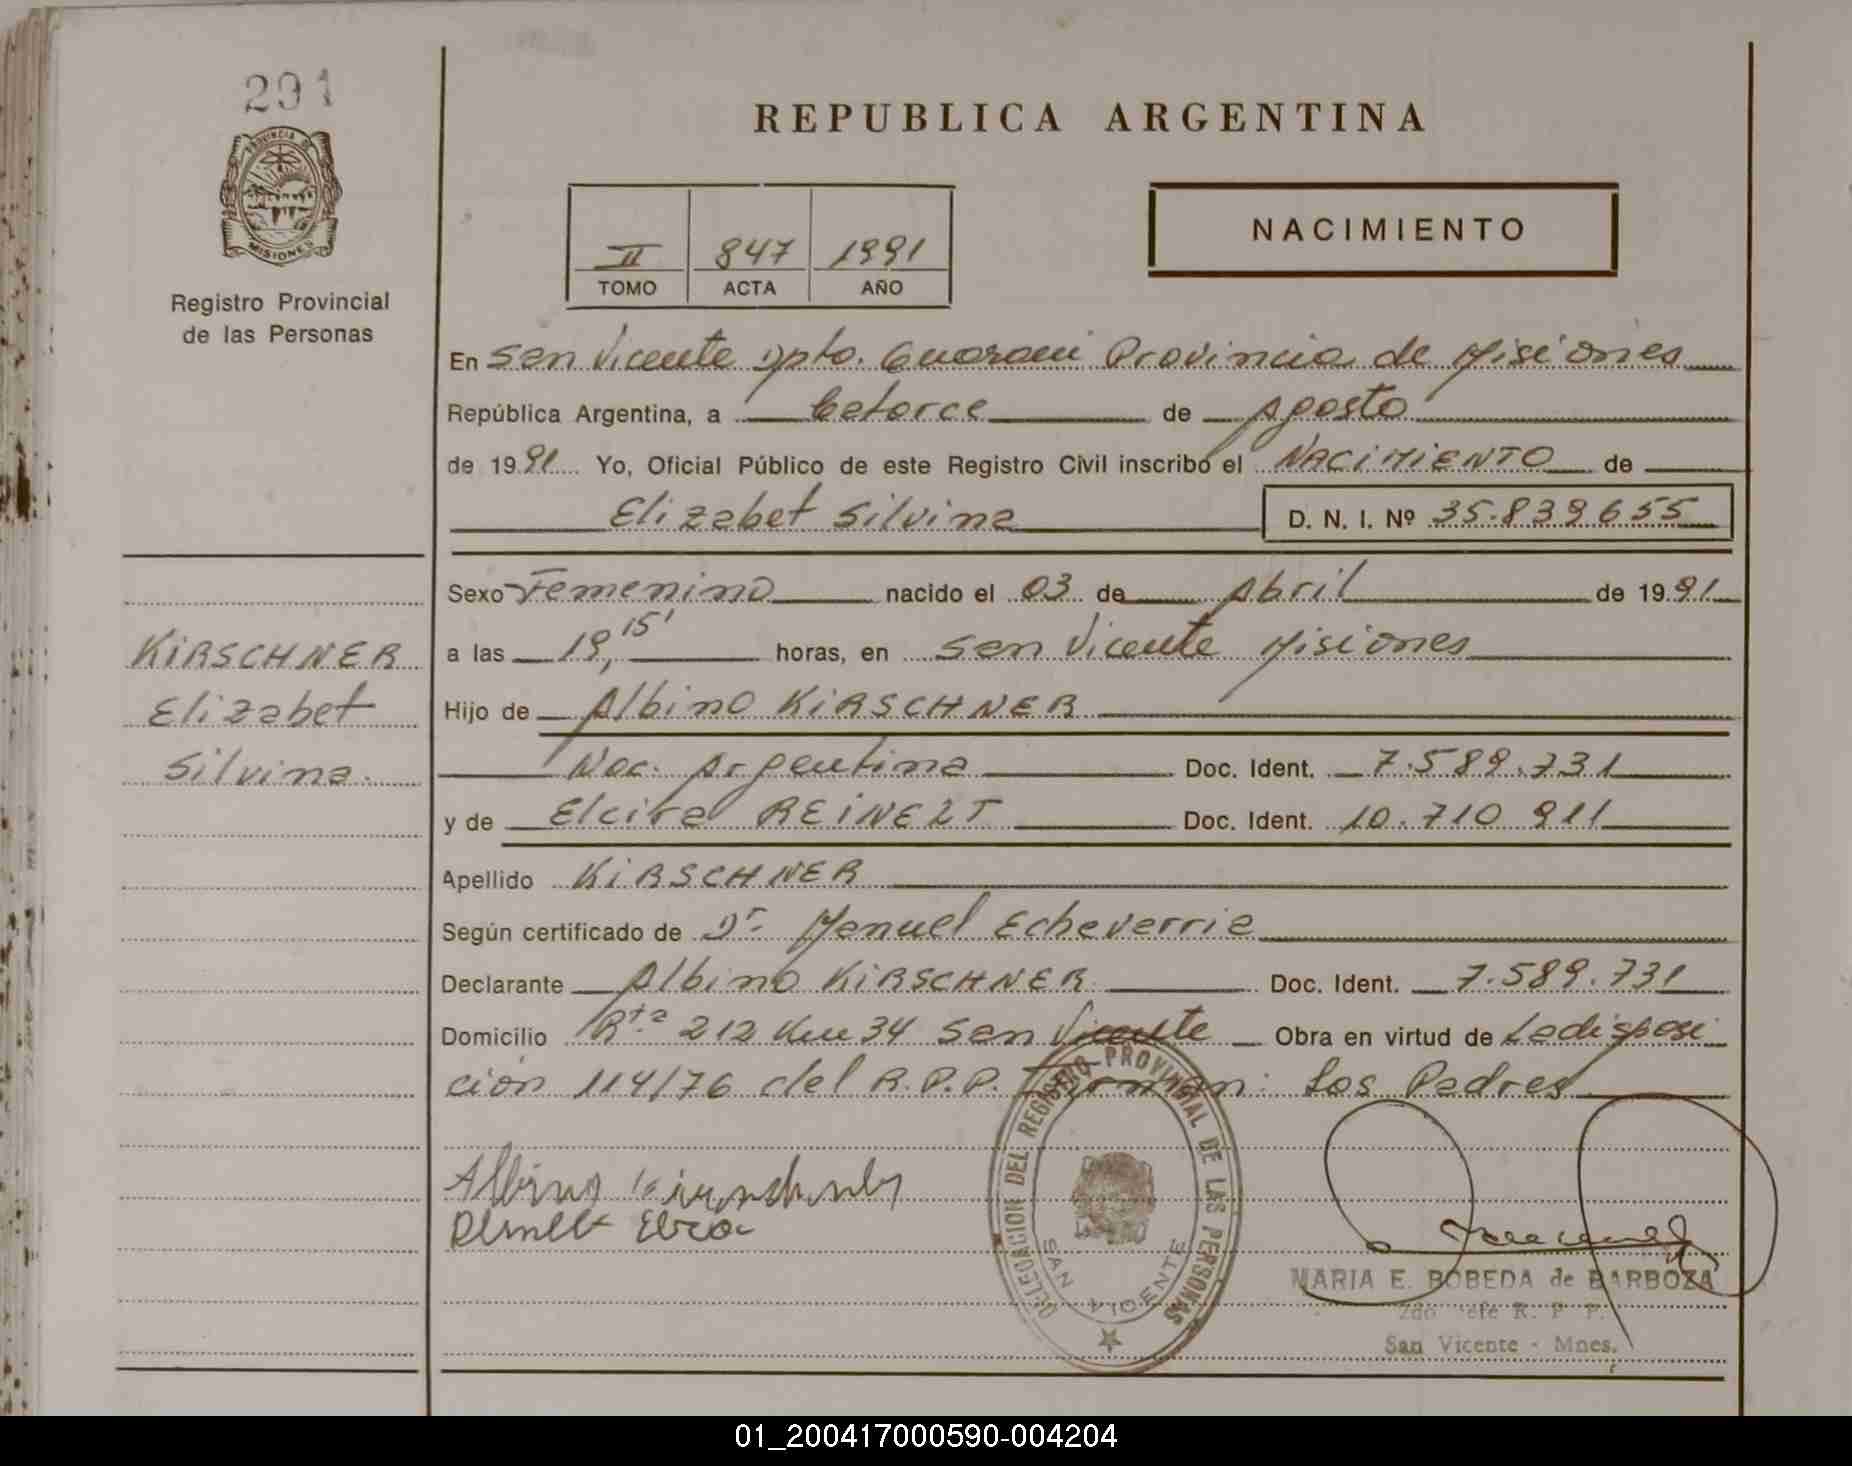 291
PROVINCIA DE
MISIONES
Registro Provincial
de las Personas
REPUBLICA ARGENTINA
II 847 1991
TOMO ACTA AÑO
NACIMIENTO
En San Vicente Dpto. Guarani Provincia de Misiones
República Argentina, a Catorce de Agosto
de 1991 Yo, Oficial Público de este Registro Civil inscribo el NACIMIENTO de
Elizabet Silvina D. N. I. Nº 35.839655
Sexo Femenino nacido el 03 de Abril de 1991
KIRSCHNER
Elizabet
Silvina.
a las 19,15' horas, en San Vicente Misiones
Hijo de Albino KIRSCHNER
Nac. Argentina Doc. Ident. 7.589.731
y de Elcira REINELT Doc. Ident. 10.710 911
Apellido KIRSCHNER
Según certificado de Dr. Manuel Echeverria
Declarante Albino KIRSCHNER Doc. Ident. 7.589.731
Domicilio Rta 212 Km 34 San Vicente Obra en virtud de La disposi
ción 114/76 del R.P.P. Firman: Los Padres
DELEGACION DEL REGISTRO PROVINCIAL DE LAS PERSONAS
SAN VICENTE
Albino
MARIA E. BOBEDA de BARBOZA
2do Jefe R. P. P.
San Vicente - Mnes.
01_200417000590-004204